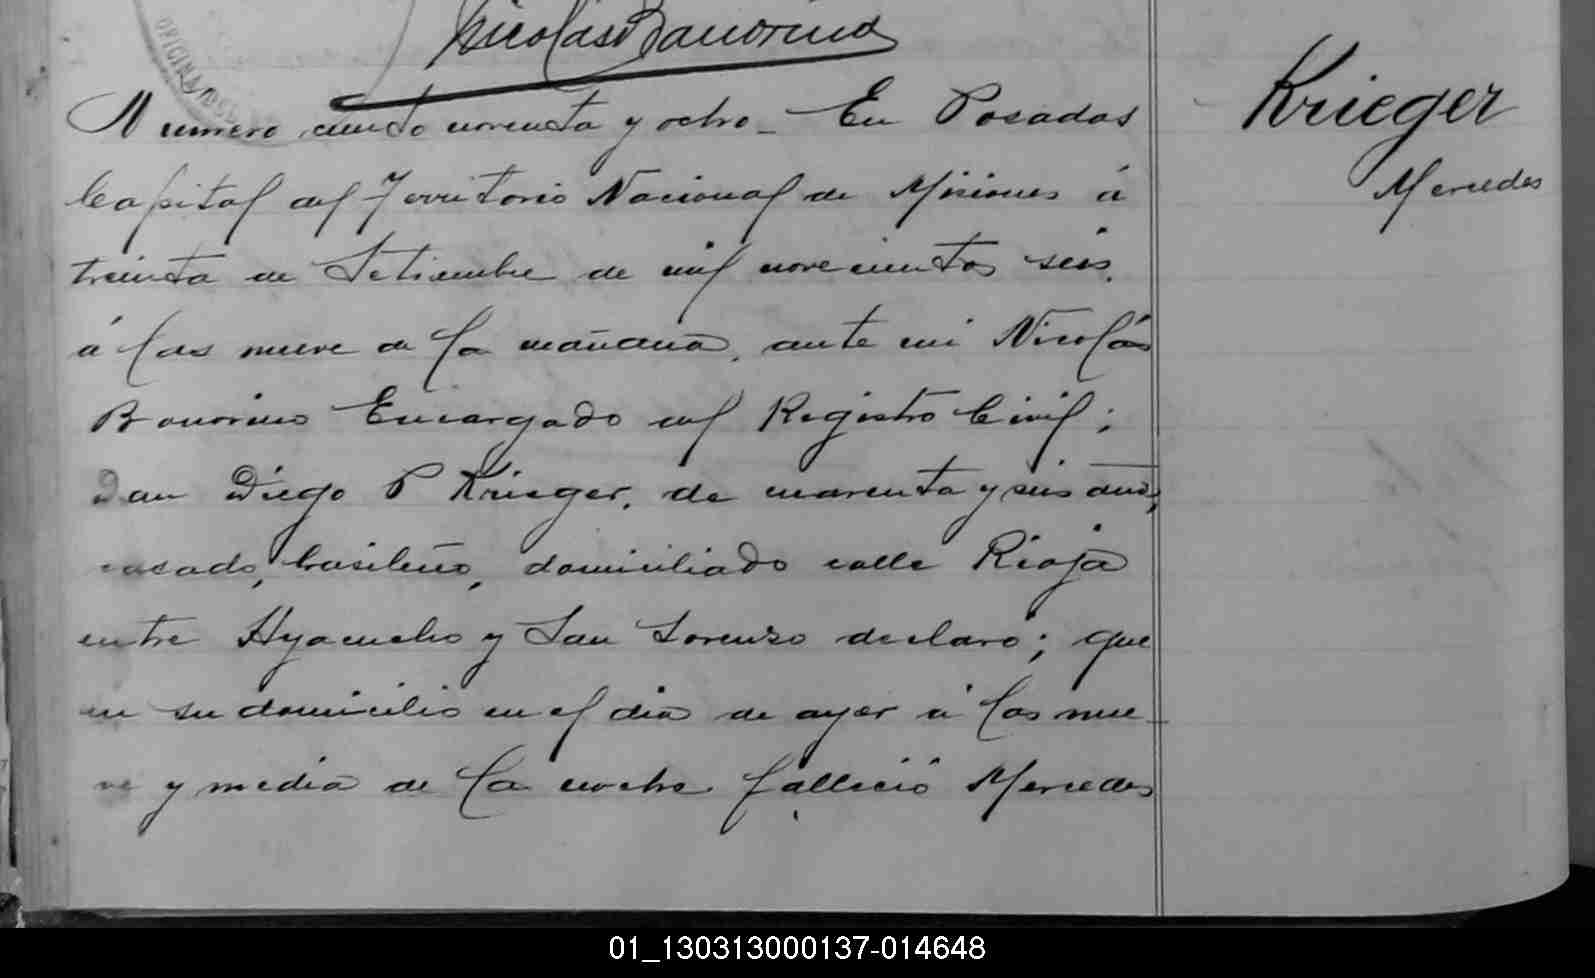 Nicolas Bonorino
OFICINA
Numero ciento noventa y ocho _ En Posadas
Capital del Territorio Nacional de Misiones á
treinta de Setiembre de mil novecientos seis,
á las nueve de la mañana, ante mi Nicolás
Bonorino Encargado del Registro Civil;
Don Diego P Krieger, de cuarenta y seis años,
casado, brasileño, domiciliado calle Rioja
entre Ayacucho y San Lorenzo declaró; que
en su domicilio en el dia de ayer á las nue
ve y media de la noche falleció Mercedes
Krieger
Mercedes
01_130313000137-014648